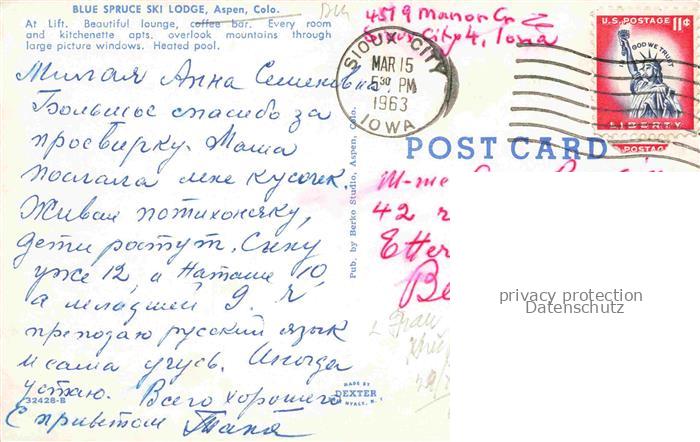 BLUE SPRUCE SKI LODGE, Aspen, Colo.
At Lift. Beautiful lounge, coffee bar. Every room
and kitchenette apts. overlook mountains through
large picture windows. Heated pool.
Милая Анна Семеновна,
Большое спасибо за
просвирку. Маша
послала мне кусочек.
Живем потихоньку,
дети ростут. Сыну
уже 12, а Наташе 10,
а младшей 9. Я
преподаю русский язык
и сама учусь. Иногда
устаю. Всего хорошего
С приветом Таня
32428-B
MADE BY
DEXTER
Pub. by Berko Studio, Aspen, Colo.
4519 Manor Cr
Sioux City 4, Iowa
SIOUX CITY
MAR 15
5 30 PM
1963
IOWA
U.S. POSTAGE 11¢
IN GOD WE TRUST
LIBERTY
POSTAG
POST CARD
M-me
42
Etter
Be
privacy protection
Datenschutz